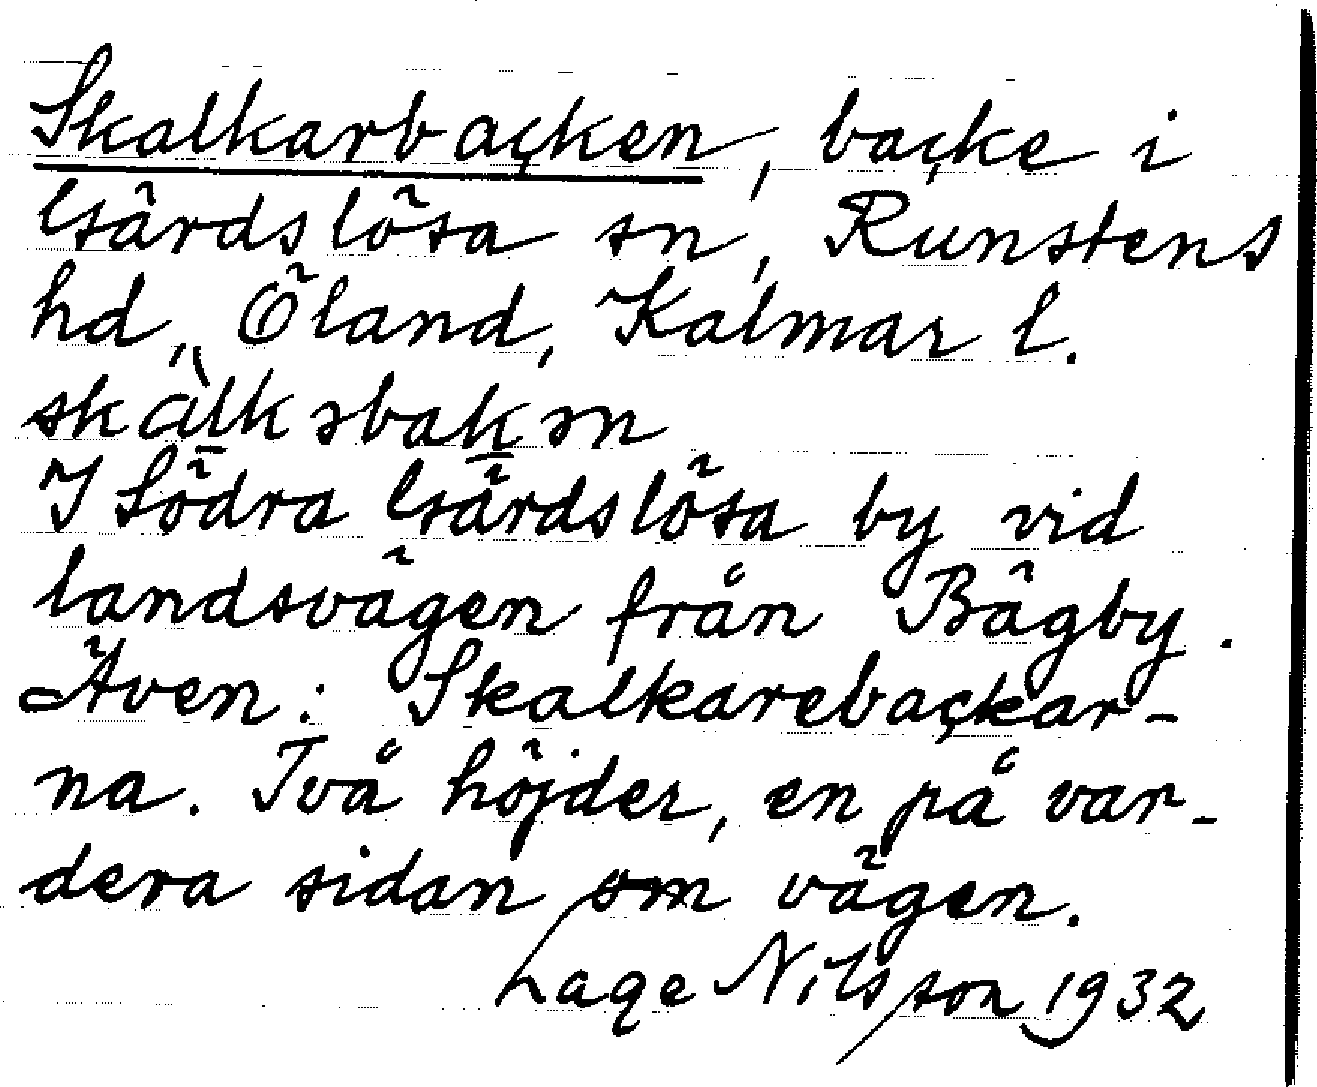 Skalkarbacken, backe i
Gärdslösa sn, Runstens
hd, Öland, Kalmar l.
skàlkərbakən
I Södra Gärdslösa by vid
landsvägen från Bägby.
Även: Skalkarebackar-
na. Två höjder, en på var-
dera sidan om vägen.
Lage Nilsson 1932